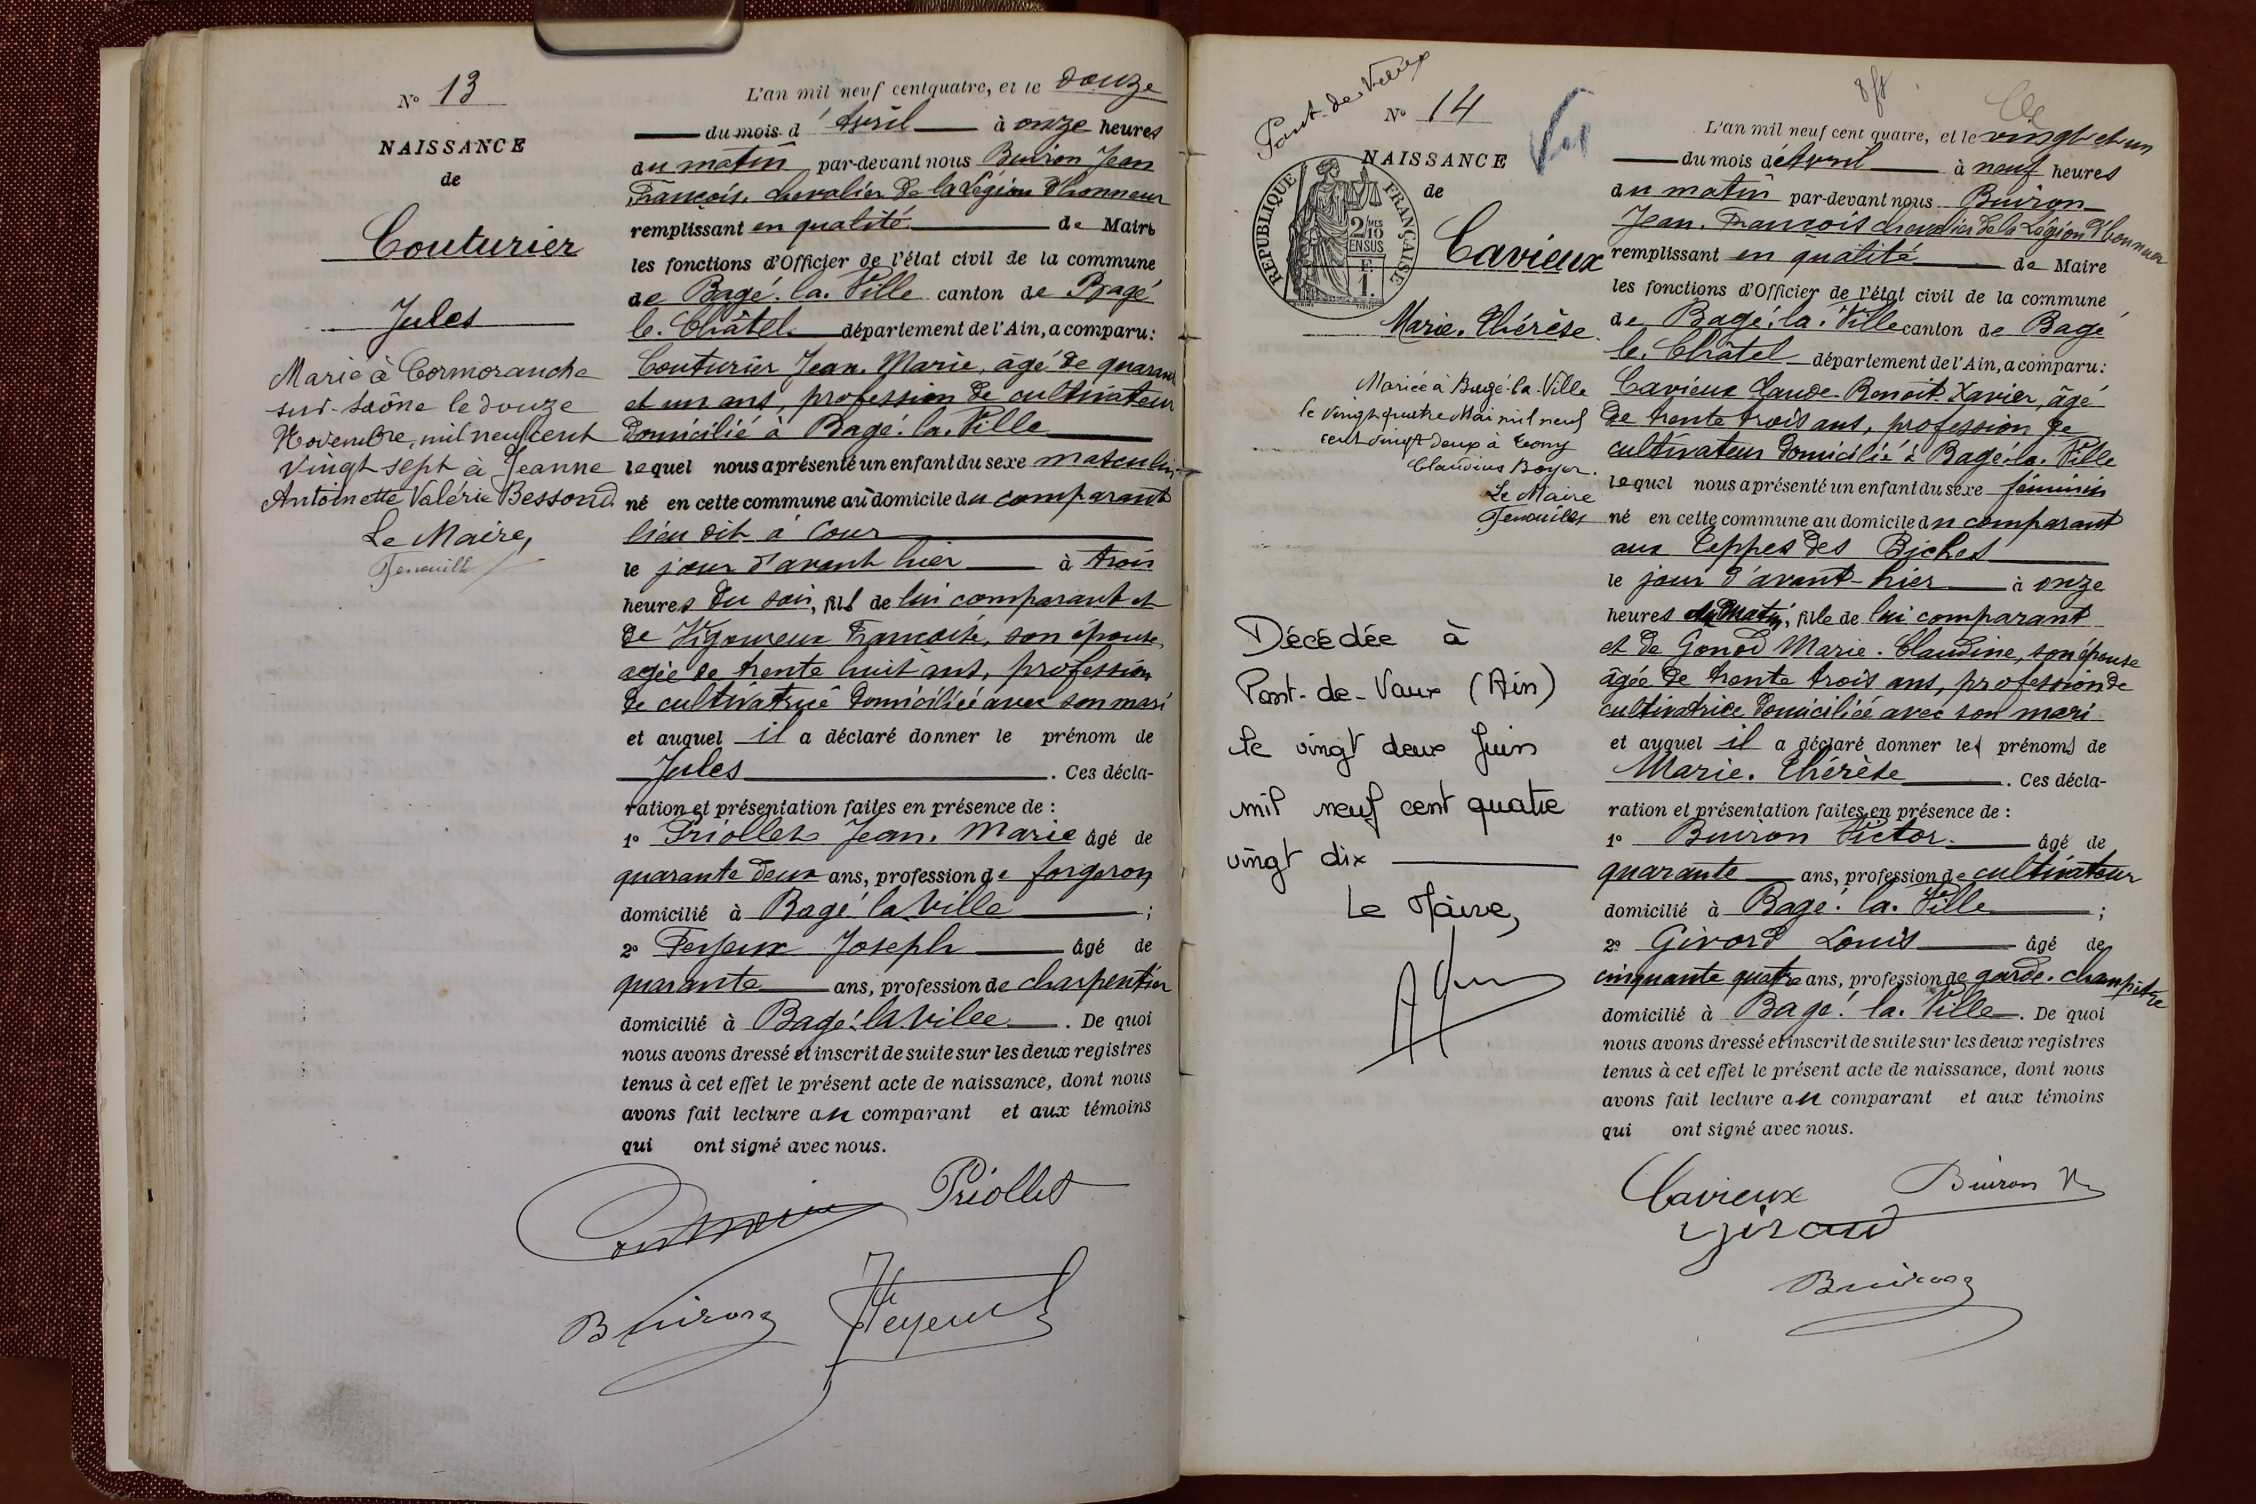 N° 13
NAISSANCE
de
Couturier
Jules
Marié à Cormoranche
sur-Saône le douze
Novembre mil neuf cent
vingt sept à Jeanne
Antoinette Valérie Bessond
Le Maire,
L'an mil neuf cent quatre, et le douze
du mois d'Avril à onze heures
du matin par-devant nous Buiron Jean
François, chevalier de la Légion d'honneur
remplissant en qualité de Maire
les fonctions d'Officier de l'état civil de la commune
de Bagé-la-Ville canton de Bagé
le-Châtel département de l'Ain, a comparu:
Couturier Jean-Marie, âgé de quarante
et un ans, profession de cultivateur
domicilié à Bagé-la-Ville
lequel nous a présenté un enfant du sexe masculin
né en cette commune au domicile du comparant
lieu dit à Cour
le jour d'avant hier à trois
heures du soir, fils de lui comparant et
de Vigoureux Françoise, son épouse,
agée de trente huit ans, profession
de cultivatrice domiciliée avec son mari
et auquel il a déclaré donner le prénom de
Jules. Ces décla-
ration et présentation faites en présence de :
1° Priollet Jean-Marie âgé de
quarante deux ans, profession de forgeron
domicilié à Bagé-la-Ville ;
2° Feyeux Joseph âgé de
quarante ans, profession de charpentier
domicilié à Bagé-la-Ville. De quoi
nous avons dressé et inscrit de suite sur les deux registres
tenus à cet effet le présent acte de naissance, dont nous
avons fait lecture au comparant et aux témoins
qui ont signé avec nous.
Priollet
Buiron Feyeux
Pont-de-Vaux
N° 14
Vu
NAISSANCE
de
RÉPUBLIQUE FRANÇAISE
2/10
EN SUS
1F.
Cavieux
Marie-Thérèse
Mariée à Bagé-la-Ville
le vingt quatre Mai mil neuf
cent vingt deux à Tony
Claudius Boyer.
Le Maire
Décédée à
Pont-de-Vaux (Ain)
le vingt deux Juin
mil neuf cent quatre
vingt dix
Le Maire,
L'an mil neuf cent quatre, et le vingt et un
du mois d'Avril à neuf heures
du matin par-devant nous Buiron
Jean-François chevalier de la Légion d'honneur
remplissant en qualité de Maire
les fonctions d'Officier de l'état civil de la commune
de Bagé-la-Ville canton de Bagé
le-Châtel département de l'Ain, a comparu:
Cavieux Claude-Benoît-Xavier, âgé
de trente trois ans, profession de
cultivateur domicilié à Bagé-la-Ville
lequel nous a présenté un enfant du sexe féminin
né en cette commune au domicile du comparant
aux Teppes des Biches
le jour d'avant-hier à onze
heures du matin, fille de lui comparant
et de Gonod Marie-Claudine, son épouse
âgée de trente trois ans, profession de
cultivatrice domiciliée avec son mari
et auquel il a déclaré donner les prénoms de
Marie-Thérèse. Ces décla-
ration et présentation faites en présence de :
1° Buiron Victor âgé de
quarante ans, profession de cultivateur
domicilié à Bagé-la-Ville ;
2° Girord Louis âgé de
cinquante quatre ans, profession de garde-champêtre
domicilié à Bagé-la-Ville. De quoi
nous avons dressé et inscrit de suite sur les deux registres
tenus à cet effet le présent acte de naissance, dont nous
avons fait lecture au comparant et aux témoins
qui ont signé avec nous.
Cavieux Buiron
Giraud
Buiron